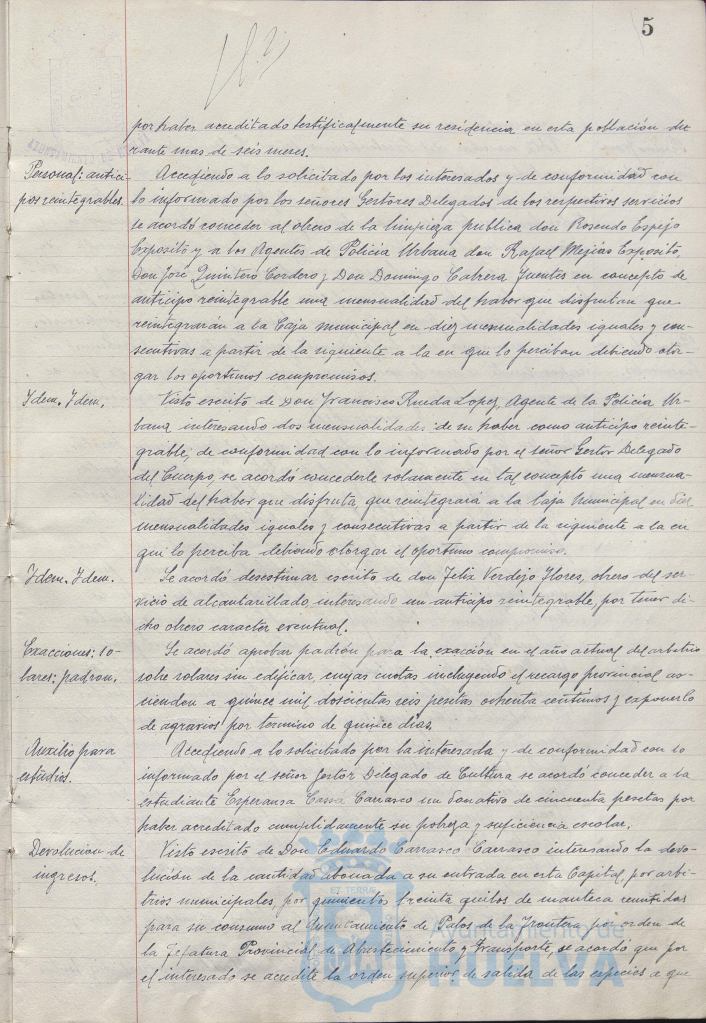 5
por haber acreditado testificalmente su residencia en esta población du
rante mas de seis meses.
Personal: antici-
pos reintegrables.
Accediendo a lo solicitado por los interesados y de conformidad con
lo informado por los señores Gestores Delegados de los respectivos servicios
se acordó conceder al obrero de la limpieza publica don Rosendo Espejo
Exposito y a los Agentes de Policia Urbana don Rafael Mejias Exposito,
Don José Quintero Cordero y Don Domingo Cabrera Fuentes en concepto de
anticipo reintegrable una mensualidad del haber que disfrutan que
reintegrarán a la Caja Municipal en diez mensualidades iguales y con-
secutivas a partir de la siguiente a la en que lo perciban debiendo otor-
gar los oportunos compromisos.
Idem. Idem.
Visto escrito de Don Francisco Rueda Lopez, Agente de la Policia Ur-
bana interesando dos mensualidades de su haber como anticipo reinte-
grable, de conformidad con lo informado por el señor Gestor Delegado
del Cuerpo, se acordó concederle solamente en tal concepto una mensua-
lidad del haber que disfruta, que reintegrará a la Caja Municipal en diez
mensualidades iguales y consecutivas a partir de la siguiente a la en
que lo perciba debiendo otorgar el oportuno compromiso.
Idem. Idem.
Se acordó desestimar escrito de don Feliz Verdejo Flores, obrero del ser-
vicio de alcantarillado, interesando un anticipo reintegrable, por tener di-
cho obrero caracter eventual.
Exacciones: so-
lares: padron.
Se acordó aprobar padrón para la exacción en el año actual del arbitrio
sobre solares sin edificar, cuyas cuotas incluyendo el recargo provincial as-
cienden a quince mil doscientas seis pesetas ochenta centimos y exponerlo
de agravios por termino de quince dias.
Auxilio para
estudio.
Accediendo a lo solicitado por la interesada y de conformidad con lo
informado por el señor Gestor Delegado de Cultura se acordó conceder a la
estudiante Esperanza Cassá Carrasco un donativo de cincuenta pesetas por
haber acreditado cumplidamente su pobreza y suficiencia escolar.
Devolucion de
ingresos.
Visto escrito de Don Eduardo Carrasco Carrasco interesando la devo-
lución de la cantidad abonada a su entrada en esta Capital por arbi-
trios municipales, por quinientos treinta quilos de manteca remitidas
para su consumo al Ayuntamiento de Palos de la Frontera, por orden de
la Jefatura Provincial de Abastecimiento y Transporte, se acordó que por
el interesado se acredite la orden superior de salida de las especies a que
Ayuntamiento de
HUELVA